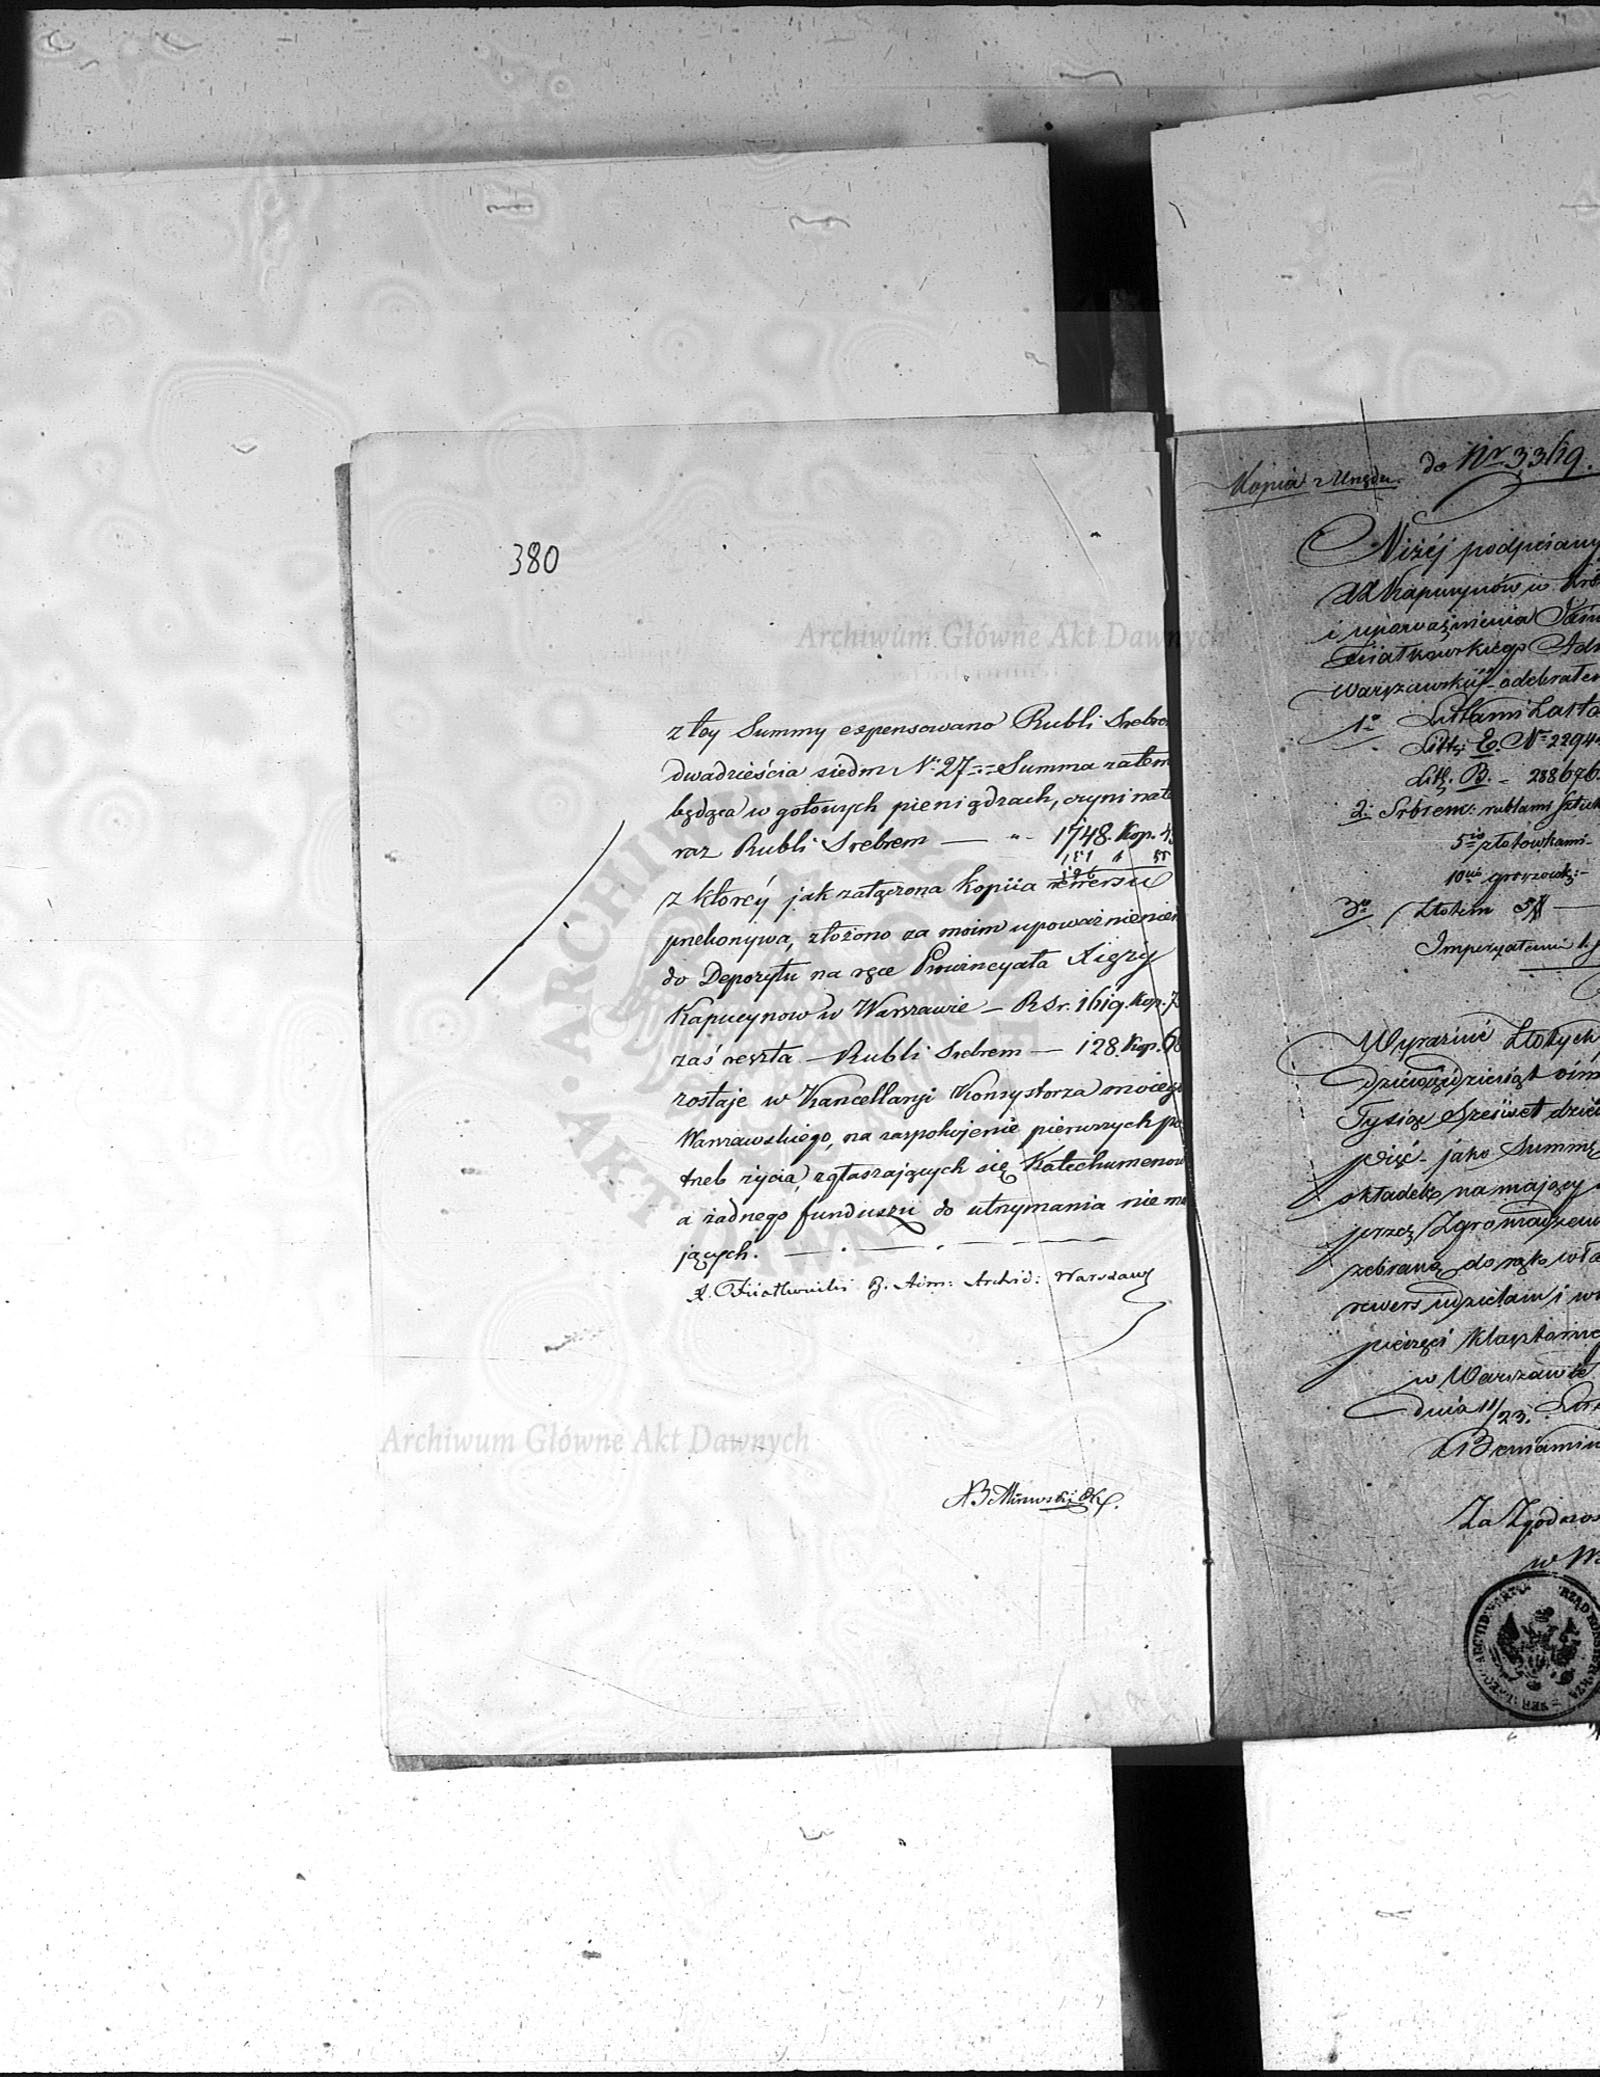 380
z tey Summy expensowano Rubli Srebre
dwadzieścia siedm Nº 27 Summa zatem
będąca w gotowych pieniądzach, czyni nate
raz Rubli Srebrem — " 1748. Kop. 4
z którey jak załączona kopiia rewersu
przekonywa, złożono za moim upoważnieniem
do Depozytu na ręce Prowincyała Xięży
Kapucynow w Warszawie — RSr. 1619. Kop. 7
zaś reszta — Rubli Srebrem — 128. Kop. 68
zostaje w Kancellaryi Konsystorza mojego
Warszawskiego, na zaspokojenie pierwszych po
treb życia, zgłaszających się Katechumenow
a żadnego funduszu do utrzymania nie ma
jących.
X. Fijałkowski B. Adm: Archid: Warszaw
Archiwum Główne Akt Dawnych
Archiwum Główne Akt Dawnych
Kopia z Urzędu. do Nr 33/19.
Niżéj podpisany
XX Kapucynów w Kró
i upoważnienia
Fijałkowskiego Adm
Warszawskiéj odebrałem
1º Listami Zasta
Litt: E. Nº 2294
Litt. B. 288696.
2. Srbrem: rublami sztuk
5cio złotówkami
10cio groszówk:
3º Złotem
Imperyałami
Wyraźnie Złotych
dziewięćdziesiąt ośm
Tysiąc sześćset dzie
pięć - jako Summę
okładek na mający
przez Zgromadzeni
zebraną do rąk wła
rewers udzielam i wł
pieczęci Klasztorne
w Warszawie
dnia 11/23.
X Beniamin
Za Zgodnoś
w Wa